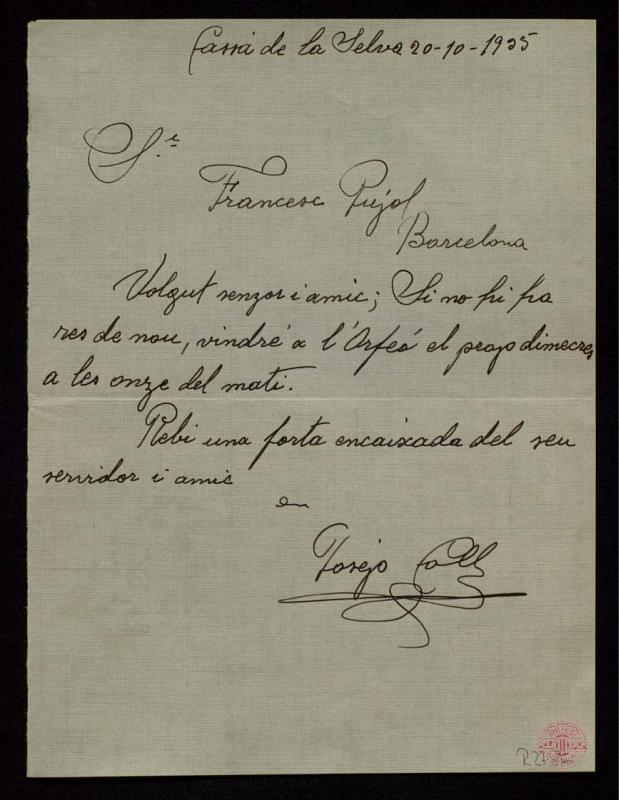 Cassà de la Selva 20-10-1935
Sr.
Francesc Pujol
Barcelona
Volgut senyor i amic; Si no hi ha
res de nou, vindré a l'Orfeó el prop dimecres
a les onze del mati.
Rebi una forta encaixada del seu
servidor i amic
en
Josep Coll